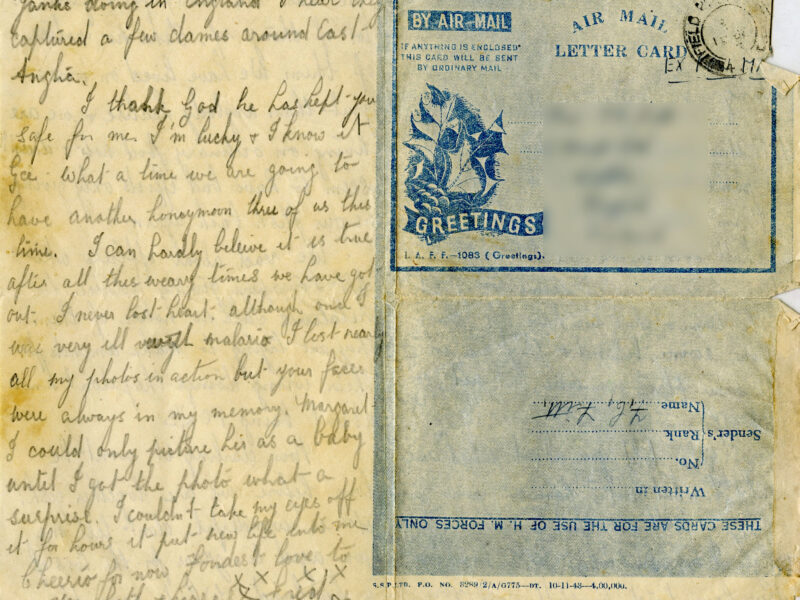 Yanks doing in England I hear they
captured a few dames around East
Anglia.
I thank God he has kept you
safe for me. I'm lucky & I know it
Gee what a time we are going to
have another honeymoon three of us this
time. I can hardly beleive it is true
after all this weary times we have got
out. I never lost heart. although once I
was very ill malaria I lost nearly
all my photos in action but your faces
were always in my memory. Margaret
I could only picture his as a baby
until I got the photo what a
surprise. I couldn't take my eyes off
it for hours it put new life into me
Cheerio for now fondest love to
x x x x
BY AIR MAIL
IF ANYTHING IS ENCLOSED
THIS CARD WILL BE SENT
BY ORDINARY MAIL
AIR MAIL
LETTER CARD
FIELD
GREETINGS
I. A. F. F.—1083 (Greetings).
THESE CARDS ARE FOR THE USE OF H. M. FORCES ONLY
Written in
No.
Sender's Rank
Name
S.S.P. LTD. P.O. NO. 8289/2/A/G775—DT. 10-11-43—4,00,000.